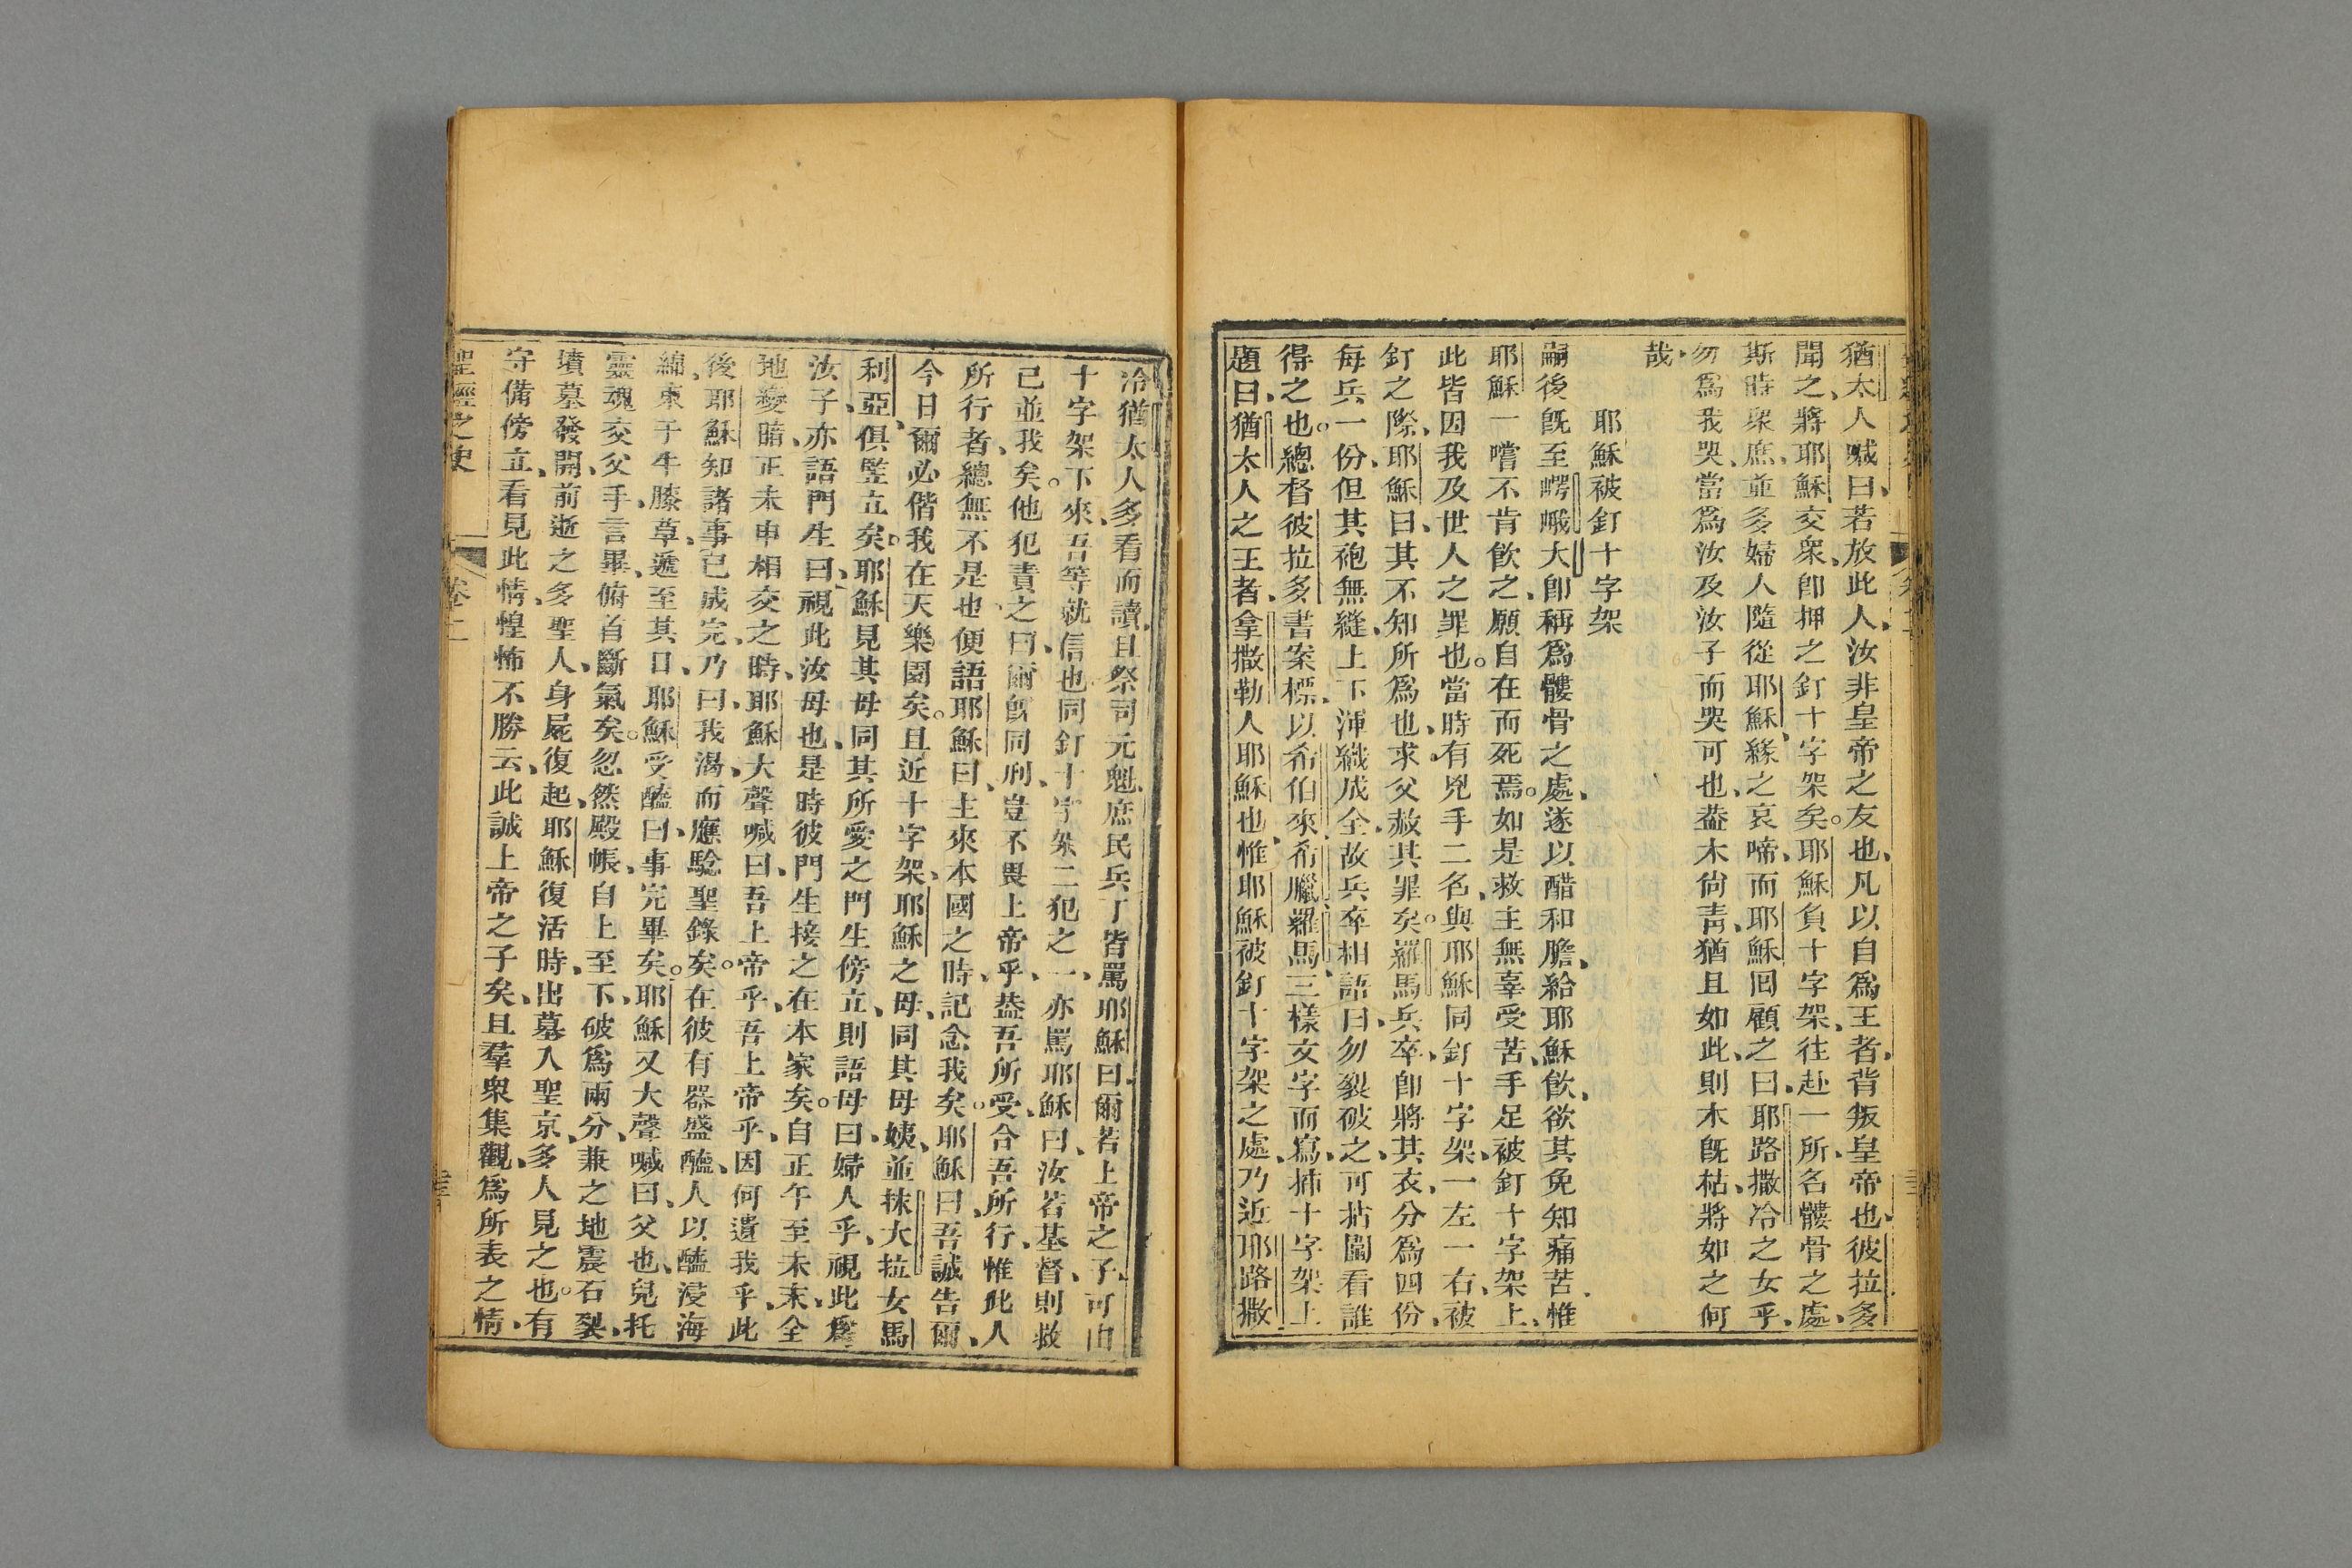 猶太人喊曰、若放此人、汝非皇帝之友也、凡以自爲王者、背叛皇帝也、彼拉多、
聞之、將耶穌交衆、卽押之釘十字架矣。耶穌負十字架、往赴一所、名髏骨之處、
斯時衆庶、並多婦人隨從耶穌、緣之哀啼、而耶穌囘顧之曰、耶路撒冷之女乎、
勿爲我哭、當爲汝及汝子而哭可也、葢木尙靑、猶且如此、則木旣枯、將如之何
哉、
耶穌被釘十字架
嗣後旣至嶗峨大、卽稱爲髏骨之處、遂以醋和膽、給耶穌飲、欲其免知痛苦、惟
耶穌一嚐不肯飲之、願自在而死焉。如是救主無辜受苦、手足被釘十字架上、
此皆因我及世人之罪也。當時、有兇手二名、與耶穌同釘十字架、一左一右、被
釘之際、耶穌曰、其不知所爲也、求父赦其罪矣。羅馬兵卒、卽將其衣、分爲四份、
每兵一份、但其袍無縫、上下渾織成全、故兵卒相語曰、勿裂破之、可拈鬮看誰
得之也。總督彼拉多書案標、以希伯來、希臘、羅馬、三樣文字而寫、揷十字架上
題曰、猶太人之王者、拿撒勒人耶穌也、惟耶穌被釘十字架之處、乃近耶路撒
冷、猶太人多看而讀、且祭司元魁、庶民兵丁、皆罵耶穌曰、爾若上帝之子、可由
十字架下來、吾等就信也、同釘十字架二犯之一、亦罵耶穌曰、汝若基督、則救
己並我矣。他犯責之曰、爾旣同刑、豈不畏上帝乎、葢吾所受、合吾所行、惟此人
所行者、總無不是也、便語耶穌曰、主來本國之時、記念我矣。耶穌曰、吾誠告爾、
今日爾必偕我在天樂園矣。且近十字架、耶穌之母、同其母姨、並抹大拉女馬
利亞、俱竪立矣、耶穌見其母同其所愛之門生傍立、則語母曰、婦人乎、視此爲
汝子、亦語門生曰、視此汝母也、是時彼門生接之在本家矣。自正午至未末、全
地變暗、正未申相交之時、耶穌大聲喊曰、吾上帝乎、吾上帝乎、因何遺我乎、此
後耶穌知諸事已成完、乃曰、我渴、而應騐聖錄矣。在彼有器盛醯、人以醯浸海
綿、束于牛膝草、遞至其口、耶穌受醯曰、事完畢矣。耶穌又大聲喊曰、父也、兒托
靈魂交父手、言畢、俯首斷氣矣。忽然殿帳、自上至下、破爲兩分、兼之地震石裂、
墳墓發開、前逝之多聖人、身屍復起、耶穌復活時、出墓入聖京、多人見之也。有
守備傍立、看見此情、惶怖不勝云、此誠上帝之子矣、且羣衆集觀、爲所表之情、
聖經之史 卷二